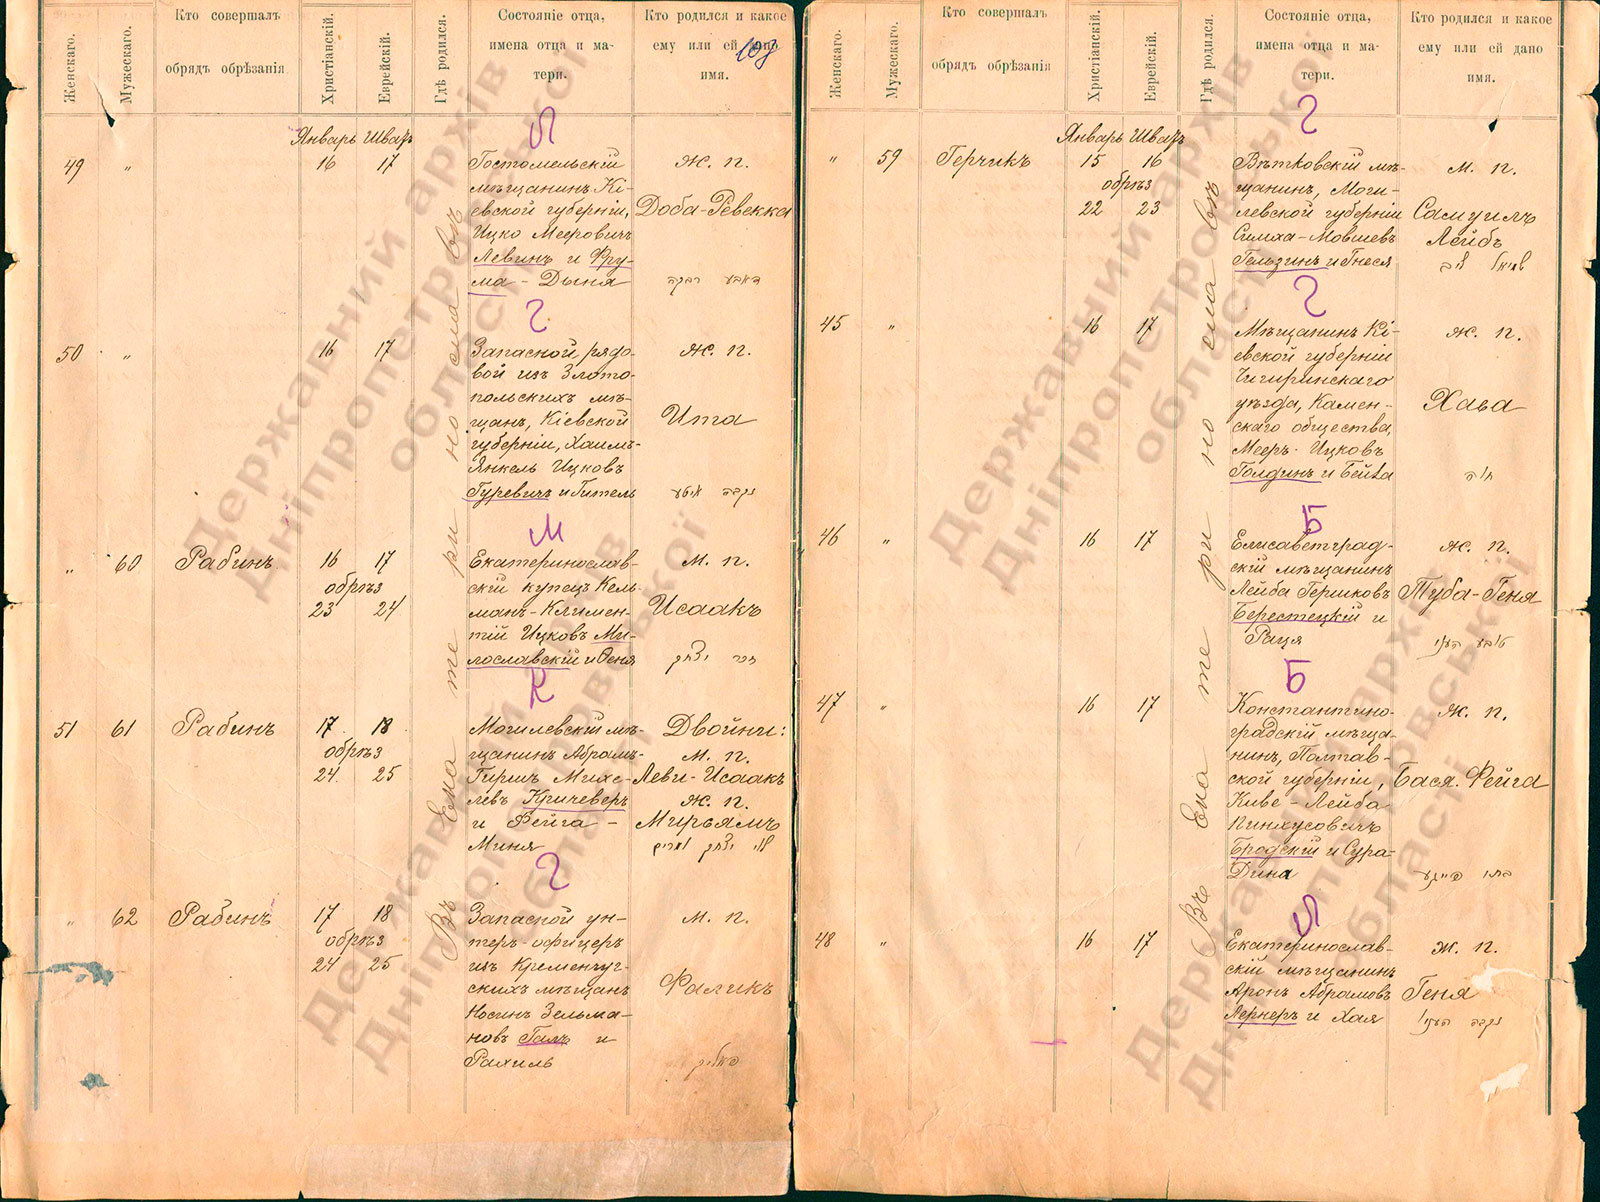 Женскаго.
Мужескаго.
Кто совершалъ
обрядъ обрѣзанія
Христіанскій.
Еврейскій.
Гдѣ родился.
Состояніе отца,
имена отца и ма-
тери.
Кто родился и какое
ему или ей дано
имя.
103
Январь Шватъ
49 „ 16 17
Гостомельскій
мѣщанинъ Кі-
евской губерніи,
Ицко Мееровичъ
Левинъ и Фру-
ма - Дыня
Ж. п.
Доба-Ревекка
דאבע רבקה
Г
50 „ 16 17
Запасной рядо-
вой изъ Злото-
польскихъ мѣ-
щанъ, Кіевской
губерніи, Хаимъ-
Янкель Ицковъ
Гуревичъ и Гитель
Ж. п.
Ита
נקבה איטע
М
„ 60 Рабинъ 16 17
обрѣз
23 24
Екатеринослав-
скій купецъ Кель-
манъ-Климен-
тій Ицковъ Ми-
лославскій и Феня
М. п.
Исаакъ
זכר יצחק
К
51 61 Рабинъ 17 18
обрѣз
24 25
Могилевскій мѣ-
щанинъ Абрамъ-
Гиршъ Михе-
левъ Кричеверъ
и Фейга -
Миня
Двойни:
М. п.
Леви-Исаакъ
Ж. п.
Мирьямъ
לוי יצחק ומרים
Г
„ 62 Рабинъ 17 18
обрѣз
24 25
Запасной ун-
теръ-офицеръ
изъ Кременчуг-
скихъ мѣщанъ
Носинъ Зельма-
новъ Галъ и
Рахиль
М. п.
Фаликъ
פאליק
Въ Екатеринославѣ
Державний архів
Дніпропетровської
області
Державний архів
Дніпропетровської
області
Женскаго.
Мужескаго.
Кто совершалъ
обрядъ обрѣзанія
Христіанскій.
Еврейскій.
Гдѣ родился.
Состояніе отца,
имена отца и ма-
тери.
Кто родился и какое
ему или ей дано
имя.
Г
Январь Шватъ
„ 59 Герчикъ 15 16
обрѣз
22 23
Вѣтковскій мѣ-
щанинъ, Моги-
левской губерніи
Симха-Мовшевъ
Гельзинъ и Гнеся
М. п.
Самуилъ
Лейбъ
שמואל ליב
Г
45 „ 16 17
Мѣщанинъ Кі-
евской губерніи
Чигиринскаго
уѣзда, Камен-
скаго общества,
Мееръ-Ицковъ
Голдинъ и Бейла
Ж. п.
Хава
חוה
Б
46 „ 16 17
Елисаветград-
скій мѣщанинъ
Лейба Гершковъ
Берестецкій и
Рация
Ж. п.
Туба-Геня
טובע העניו
Б
47 „ 16 17
Константино-
градскій мѣща-
нинъ, Полтав-
ской губерніи,
Киве-Лейба
Пинхусовичъ
Бродскій и Сура-
Дина
Ж. п.
Бася. Фейга
בתיו פייגע
48 „ 16 17
Екатеринослав-
скій мѣщанинъ
Аронъ Абрамовъ
Лернеръ и Хая
Ж. п.
Геня
נקבה העניו
Въ Екатеринославѣ
Державний архів
Дніпропетровської
області
Державний архів
Дніпропетровської
області